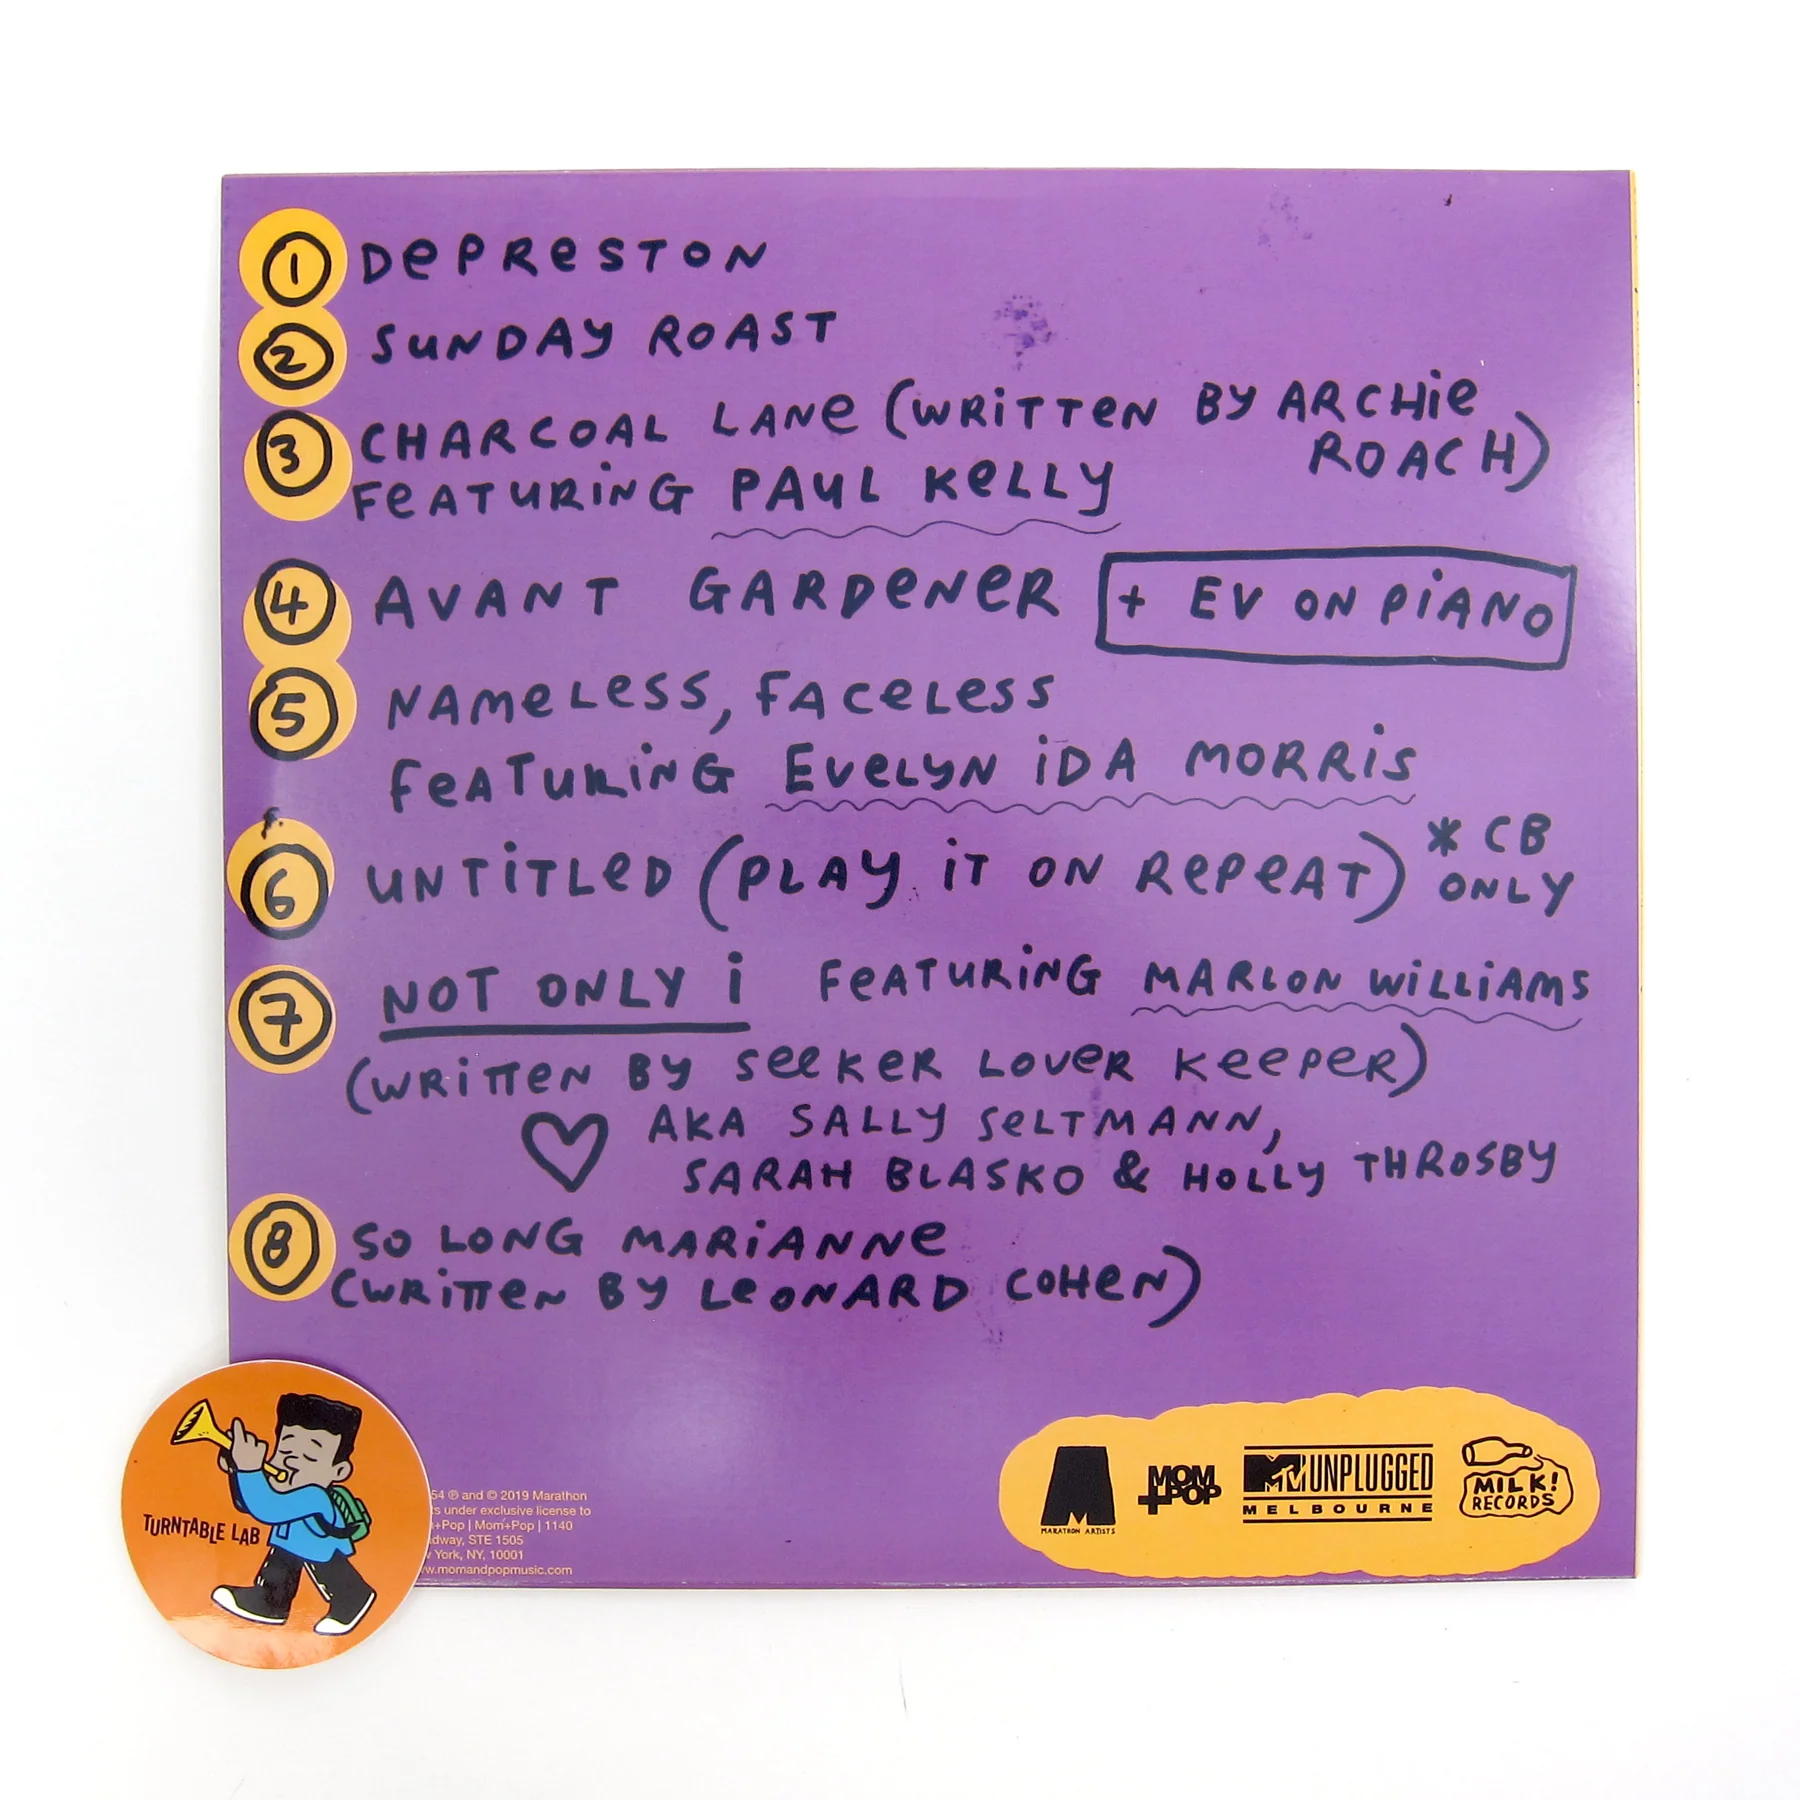 1 DEPRESTON
2 SUNDAY ROAST
3 CHARCOAL LANE (WRITTEN BY ARCHIE
ROACH)
FEATURING PAUL KELLY
4 AVANT GARDENER + EV ON PIANO
5 NAMELESS, FACELESS
FEATURING EVELYN IDA MORRIS
6 UNTITLED (PLAY IT ON REPEAT) * CB
ONLY
7 NOT ONLY I FEATURING MARLON WILLIAMS
(WRITTEN BY SEEKER LOVER KEEPER)
AKA SALLY SELTMANN,
SARAH BLASKO & HOLLY THROSBY
8 SO LONG MARIANNE
(WRITTEN BY LEONARD COHEN)
TURNTABLE LAB
54 ℗ and © 2019 Marathon
ts under exclusive license to
+Pop | Mom+Pop | 1140
dway, STE 1505
York, NY, 10001
w.momandpopmusic.com
M
MARATHON ARTISTS
MOM
+POP
MTV UNPLUGGED
MELBOURNE
MILK!
RECORDS